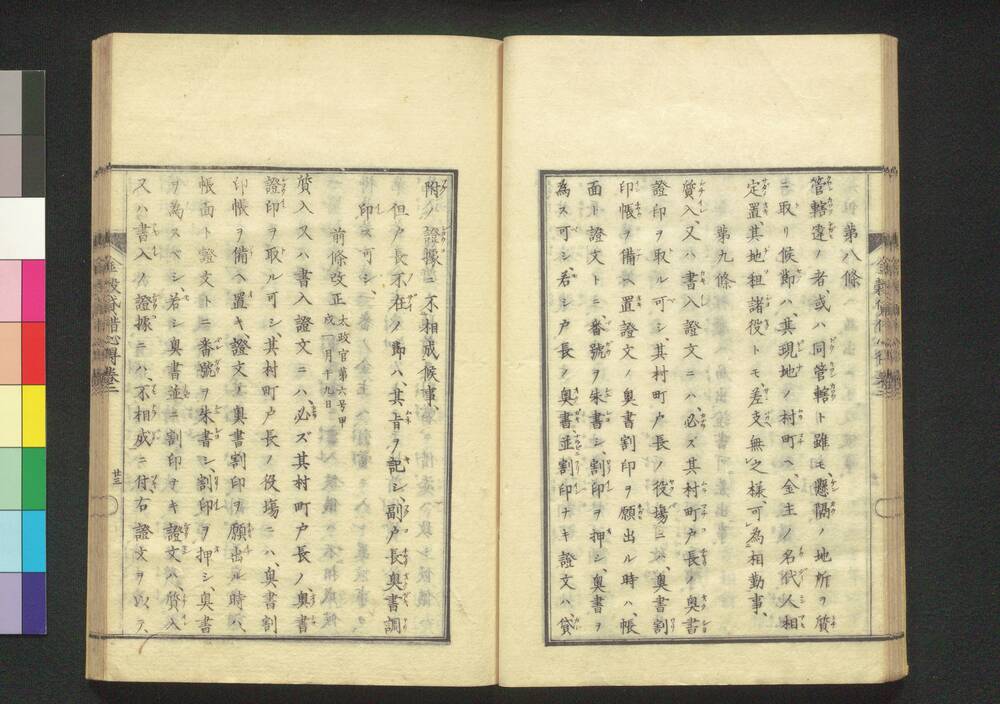 第八條
管轄違ノ者、或ハ同管轄ト雖モ、懸隔ノ地所ヲ質
ニ取リ候節ハ、其現地ノ村町ヘ、金主ノ名代人相
定置、其地租諸役トモ、差支無之樣、可為相勤事、
第九條
質入、又ハ書入證文ニハ、必ズ其村町戸長ノ奥書
證印ヲ取ル可シ、其村町戸長ノ役塲ニハ、奥書割
印帳ヲ備ヘ置證文ノ奥書割印ヲ願出ル時ハ、帳
面ト證文トニ、番號ヲ朱書シ、割印ヲ押シ、奥書ヲ
為ス可シ、若シ戸長ノ奥書並割印ナキ證文ハ、貸
附ノ證據ニ不相成候事、
但戸長不在ノ節ハ、其旨ヲ記シ、副戸長奥書調
印ス可シ、
前條改正 太政官第六号甲
戌一月十九日
質入又ハ書入證文ニハ必ズ其村町戸長ノ奥書
證印ヲ取ル可シ、其村町戸長ノ役塲ニハ、奥書割
印帳ヲ備ヘ置キ、證文ノ奥書割印ヲ願出ル時ハ、
帳面ト證文トニ番號ヲ朱書シ、割印ヲ押シ、奥書
ヲ為スベシ、若シ奥書並ニ割印ナキ證文ハ質入
又ハ書入ノ證據ニハ、不相成ニ付、右證文ヲ以テ、
金穀貸借心得巻二
廿三